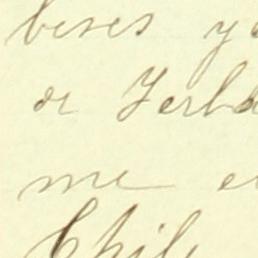 beses y
de Yerba
me e
Chile